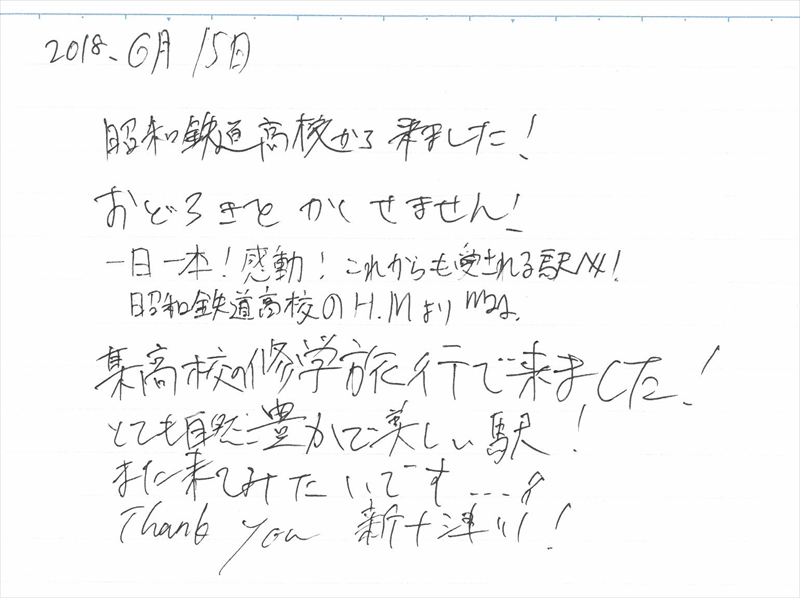 2018. 6月15日
昭和鉄道高校から来ました!
おどろきをかくせません!
一日一本!感動!これからも愛される駅へ!
昭和鉄道高校のH.Mより
某高校の修学旅行で来ました!
とても自然に豊かで美しい駅!
また来てみたいです...
Thank you 新十津川!